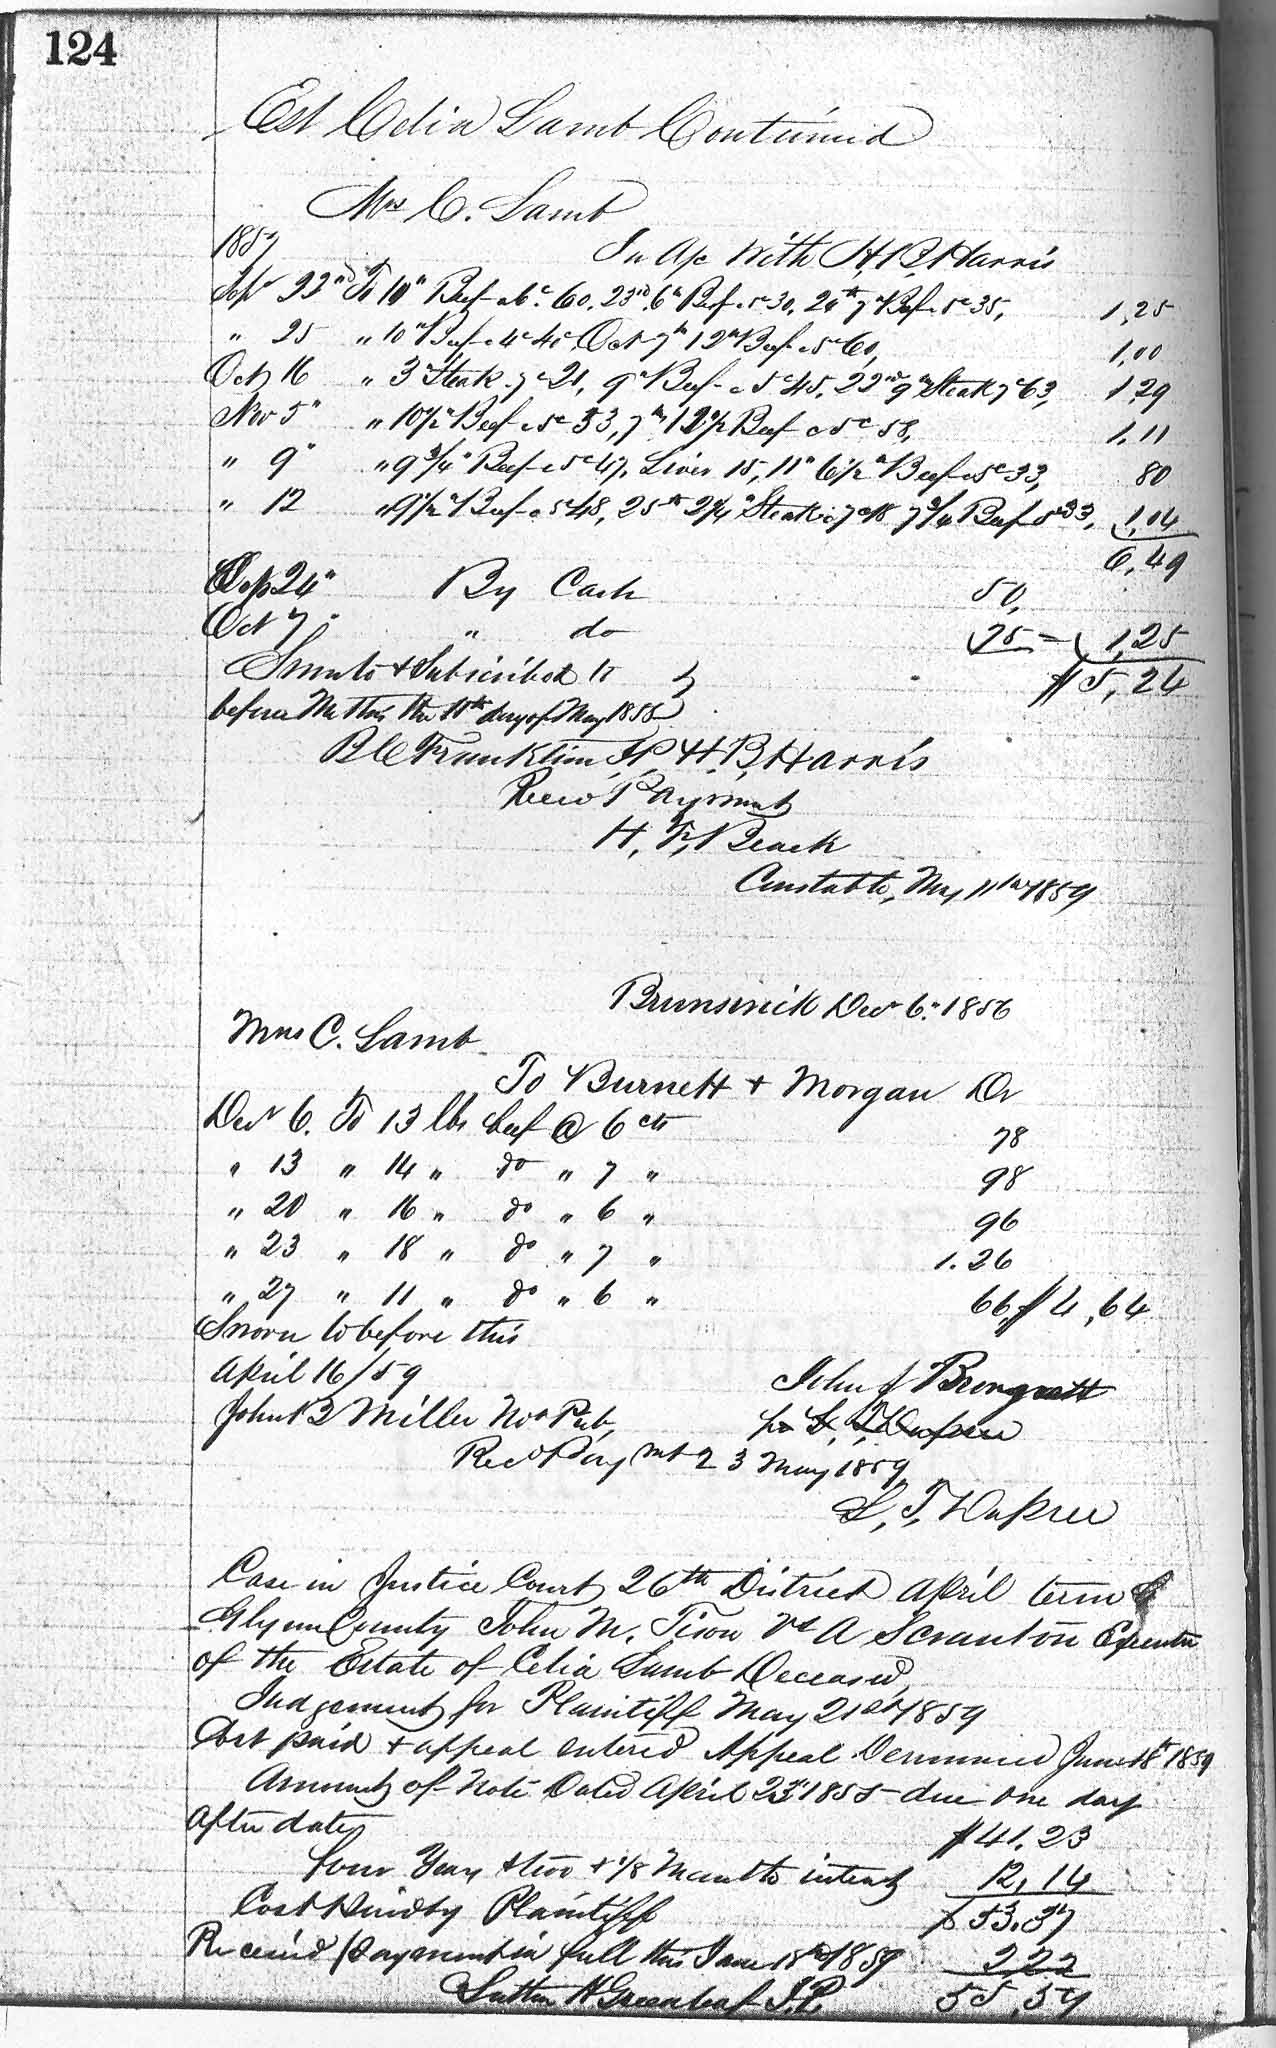 124
Est Celia Lamb Continued
Mrs C. Lamb
1857
In A/c With H B Harris
Sept 22nd To 10" Beef a 6c 60, 23rd 6" Beef a 5c 30, 24th 7" Beef a 5c 35, 1,25
" 25 " 10" Beef a 4c 40, Oct 7th 12" Beef a 5c 60, 1,00
Oct 16 " 3" Steak 7c 21, 9" Beef a 5c 45, 22nd 9" Steak 7c 63, 1,29
Nov 5" " 10 1/2" Beef a 5c 53, 7th 12 1/2 Beef a 5c 58, 1,11
" 9" " 9 3/4" Beef a 5c 47, Liver 15, 11" 6 1/2" Beef a 5c 33, 80
" 12 " 9 1/2" Beef a 5 48, 25th 2 1/4" Steak a 7c 18 7 3/4 Beef 5c 33, 1,04
6,49
Sept 24" By Cash 50,
Oct 7 " do 75 – 1,25
$ 5,24
& Subscribed to
before Me this the 11th day of May 1858
B C Franklin J P H. B. Harris
Recd Payment
H. F. Beack
Constable, May 11th 1859
Brunswick Decr 6" 1856
Mrs C. Lamb
To Burnett & Morgan Dr
Decr 6. To 13 lbs beef @ 6 cts 78
" 13 " 14 " do " 7 " 98
" 20 " 16 " do " 6 " 96
" 23 " 18 " do " 7 " 1.26
" 27 " 11 " do " 6 " 66, $ 4,64
Sworn to before this
April 16/59
John J
John B Miller Not Pub,
Recd Payment 23 May 1859
L, T, Dupree
Case in Justice Court 26th District April term
Glynn County John M. Tison vs A Scranton Executor
of the Estate of Celia Lamb Deceased,
Judgement for Plaintiff May 21st 1859
Cost paid & appeal entered Appeal June 18th 1859
Amount of Note Dated April 23d 1855 due one day
after date $ 41,23
four Years & two & 1/8 Months interest 12,14
$ 53,37
Cost Plaintiff
2,22
Received payment in full this June 18th 1859
55,59
Greenleaf J.P.